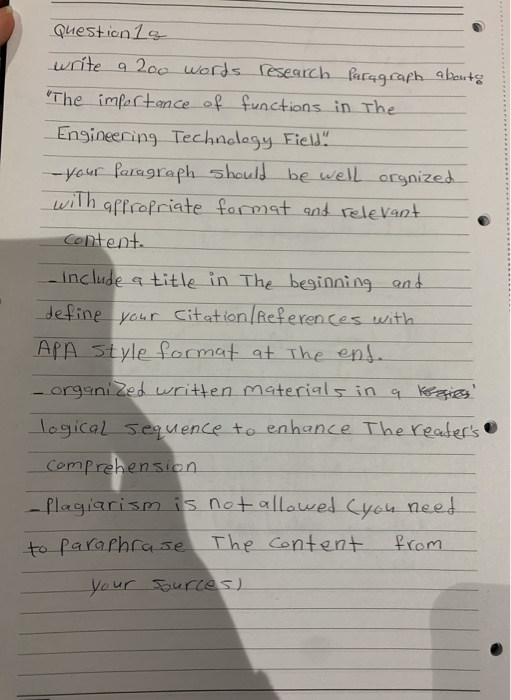 Question 1:
write a 200 words research Paragraph about:
"The importance of functions in The
Engineering Technology Field".
- your Paragraph should be well orgnized
with appropriate format and relevant
content.
- include a title in The beginning and
define your Citation/References with
APA style format at The end.
- organized written materials in a
logical sequence to enhance The reader's
comprehension
- Plagiarism is not allowed (you need
to Paraphrase The content from
your sources)